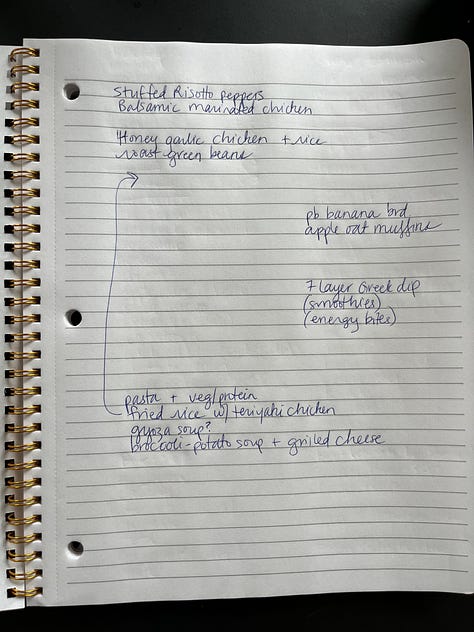 Stuffed Risotto peppers
Balsamic marinated chicken
Honey garlic chicken + rice
roast green beans
pb banana brd
apple oat muffins
7 layer Greek dip
(smoothies)
(energy bites)
pasta + veg/protein
fried rice w/ teriyaki chicken
gyoza soup?
broccoli-potato soup + grilled cheese